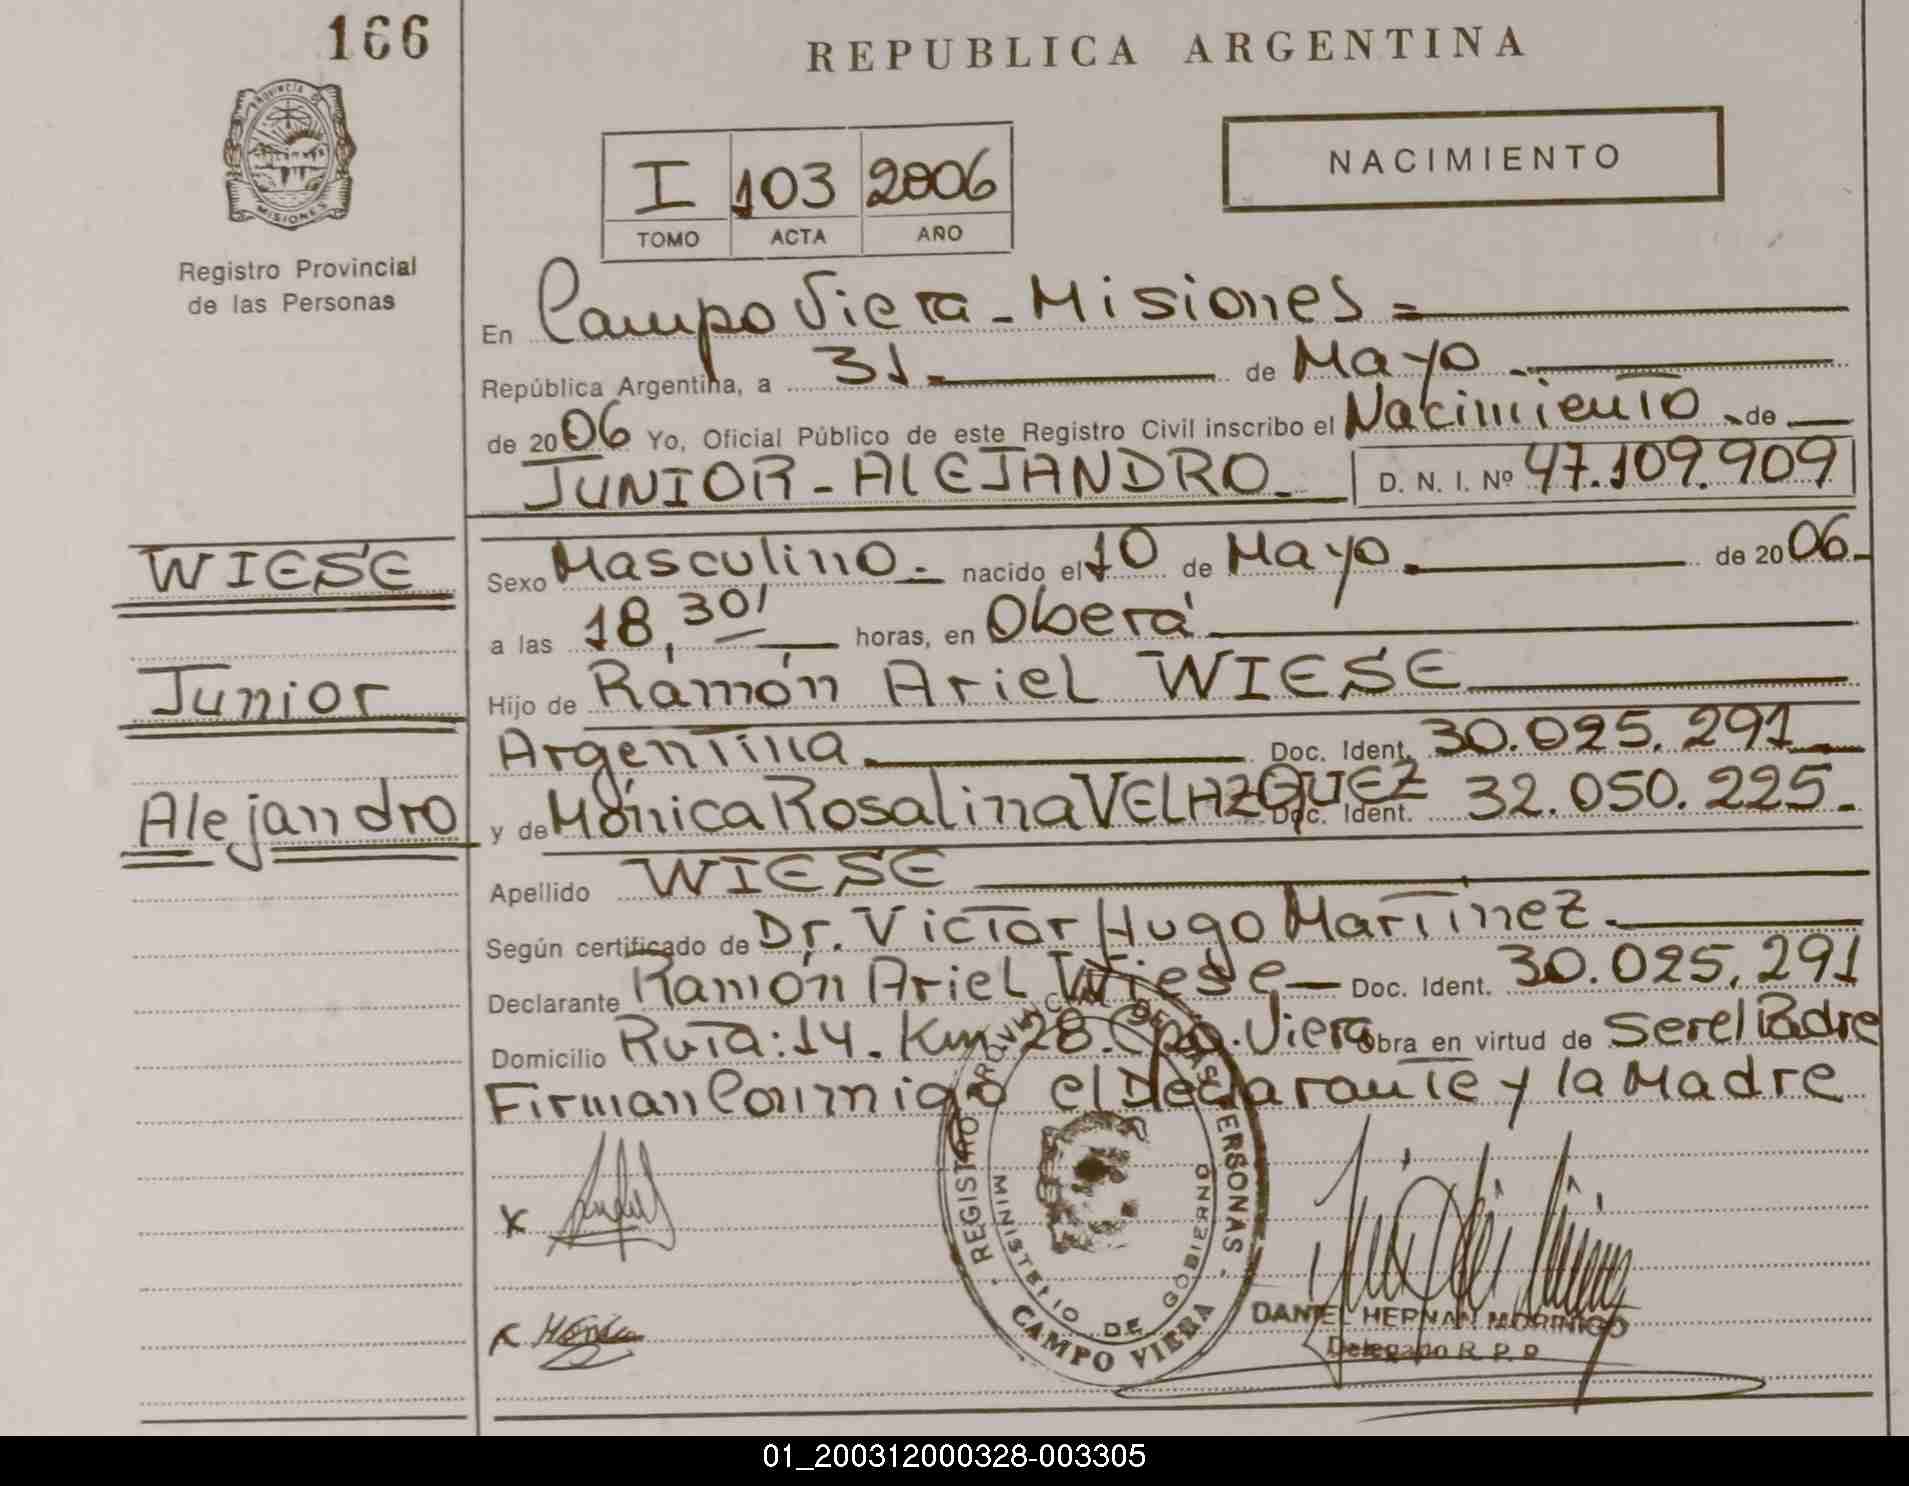 166
REPUBLICA ARGENTINA
PROVINCIA DE
MISIONES
Registro Provincial
de las Personas
I 103 2006
TOMO ACTA AÑO
NACIMIENTO
En Campo Viera - Misiones =
República Argentina, a 31 de Mayo
de 2006 Yo, Oficial Público de este Registro Civil inscribo el Nacimiento de
JUNIOR - ALEJANDRO D. N. I. Nº 47.109.909
WIESE
Junior
Alejandro
Sexo Masculino nacido el 10 de Mayo de 2006
a las 18,30' horas, en Oberá
Hijo de Ramón Ariel WIESE
Argentina Doc. Ident. 30.025.291
y de Mónica Rosalina VELAZQUEZ Doc. Ident. 32.050.225
Apellido WIESE
Según certificado de Dr. Victor Hugo Martinez
Declarante Ramón Ariel Wiese Doc. Ident. 30.025.291
Domicilio Ruta: 14. Km 28. Cpo. Viera obra en virtud de Ser el Padre
Firman Conmigo el Declarante y la Madre
REGISTRO PROVINCIAL DE LAS PERSONAS
MINISTERIO DE GOBIERNO
CAMPO VIERA
x
x Mónica
DANIEL HERNAN MORINIGO
Delegado R. P. P.
01_200312000328-003305